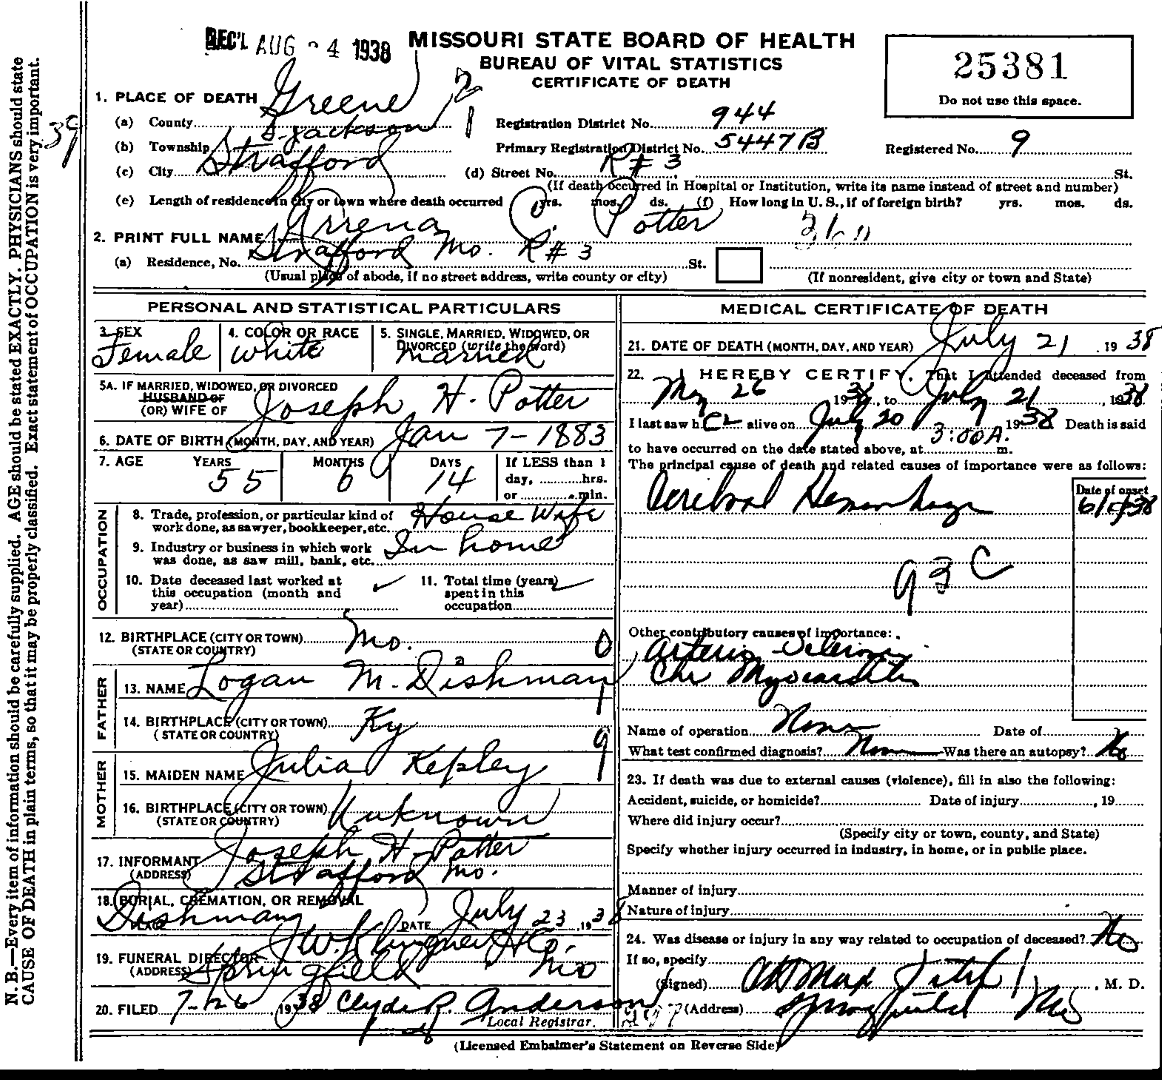 REC'L AUG 24 1938
MISSOURI STATE BOARD OF HEALTH
BUREAU OF VITAL STATISTICS
CERTIFICATE OF DEATH
25381
Do not use this space.
1. PLACE OF DEATH
(a) County Greene
(b) Township S. Jackson
(c) City Strafford
Registration District No. 944
Primary Registration District No. 5447B
Registered No. 9
(d) Street No. R # 3 St.
(If death occurred in Hospital or Institution, write its name instead of street and number)
(e) Length of residence in city or town where death occurred yrs. mos. ds. (f) How long in U. S., if of foreign birth? yrs. mos. ds.
2. PRINT FULL NAME Arrena C. Potter
(a) Residence, No. Strafford Mo. R # 3 St.
(Usual place of abode, if no street address, write county or city) (If nonresident, give city or town and State)
PERSONAL AND STATISTICAL PARTICULARS
3. SEX Female
4. COLOR OR RACE White
5. SINGLE, MARRIED, WIDOWED, OR DIVORCED (write the word) Married
5A. IF MARRIED, WIDOWED, OR DIVORCED
HUSBAND OF
(OR) WIFE OF Joseph H. Potter
6. DATE OF BIRTH (MONTH, DAY, AND YEAR) Jan 7 - 1883
7. AGE YEARS 55 MONTHS 6 DAYS 14 If LESS than 1 day, hrs. or min.
OCCUPATION
8. Trade, profession, or particular kind of work done, as sawyer, bookkeeper, etc. House Wife
9. Industry or business in which work was done, as saw mill, bank, etc. In home
10. Date deceased last worked at this occupation (month and year)
11. Total time (years) spent in this occupation
12. BIRTHPLACE (CITY OR TOWN) Mo. 0
(STATE OR COUNTRY)
FATHER
13. NAME Logan M. Dishman
14. BIRTHPLACE (CITY OR TOWN) Ky
(STATE OR COUNTRY)
MOTHER
15. MAIDEN NAME Julia Kepley
16. BIRTHPLACE (CITY OR TOWN) Unknown
(STATE OR COUNTRY)
17. INFORMANT Joseph H. Potter
(ADDRESS) Strafford Mo.
18. BURIAL, CREMATION, OR REMOVAL
PLACE Dishman DATE July 23 1938
19. FUNERAL DIRECTOR J W Klingner & Co.
(ADDRESS) Springfield Mo
20. FILED 7-26 1938 Clyde R. Anderson
Local Registrar.
MEDICAL CERTIFICATE OF DEATH
21. DATE OF DEATH (MONTH, DAY, AND YEAR) July 21, 1938
22. I HEREBY CERTIFY, That I attended deceased from
May 26 1938, to July 21, 1938
I last saw her alive on July 20 1938 Death is said
to have occurred on the date stated above, at 3:00 A. m.
The principal cause of death and related causes of importance were as follows:
Cerebral Hemorrhage
Date of onset
93C
Other contributory causes of importance:
Arterio Sclerosis
Chr Myocarditis
Name of operation None Date of
What test confirmed diagnosis? None Was there an autopsy? No
23. If death was due to external causes (violence), fill in also the following:
Accident, suicide, or homicide? Date of injury , 19
Where did injury occur?
(Specify city or town, county, and State)
Specify whether injury occurred in industry, in home, or in public place.
Manner of injury
Nature of injury
24. Was disease or injury in any way related to occupation of deceased? No
If so, specify
(Signed) , M. D.
(Address) Springfield Mo
(Licensed Embalmer's Statement on Reverse Side)
N. B.—Every item of information should be carefully supplied. AGE should be stated EXACTLY. PHYSICIANS should state
CAUSE OF DEATH in plain terms, so that it may be properly classified. Exact statement of OCCUPATION is very important.
39